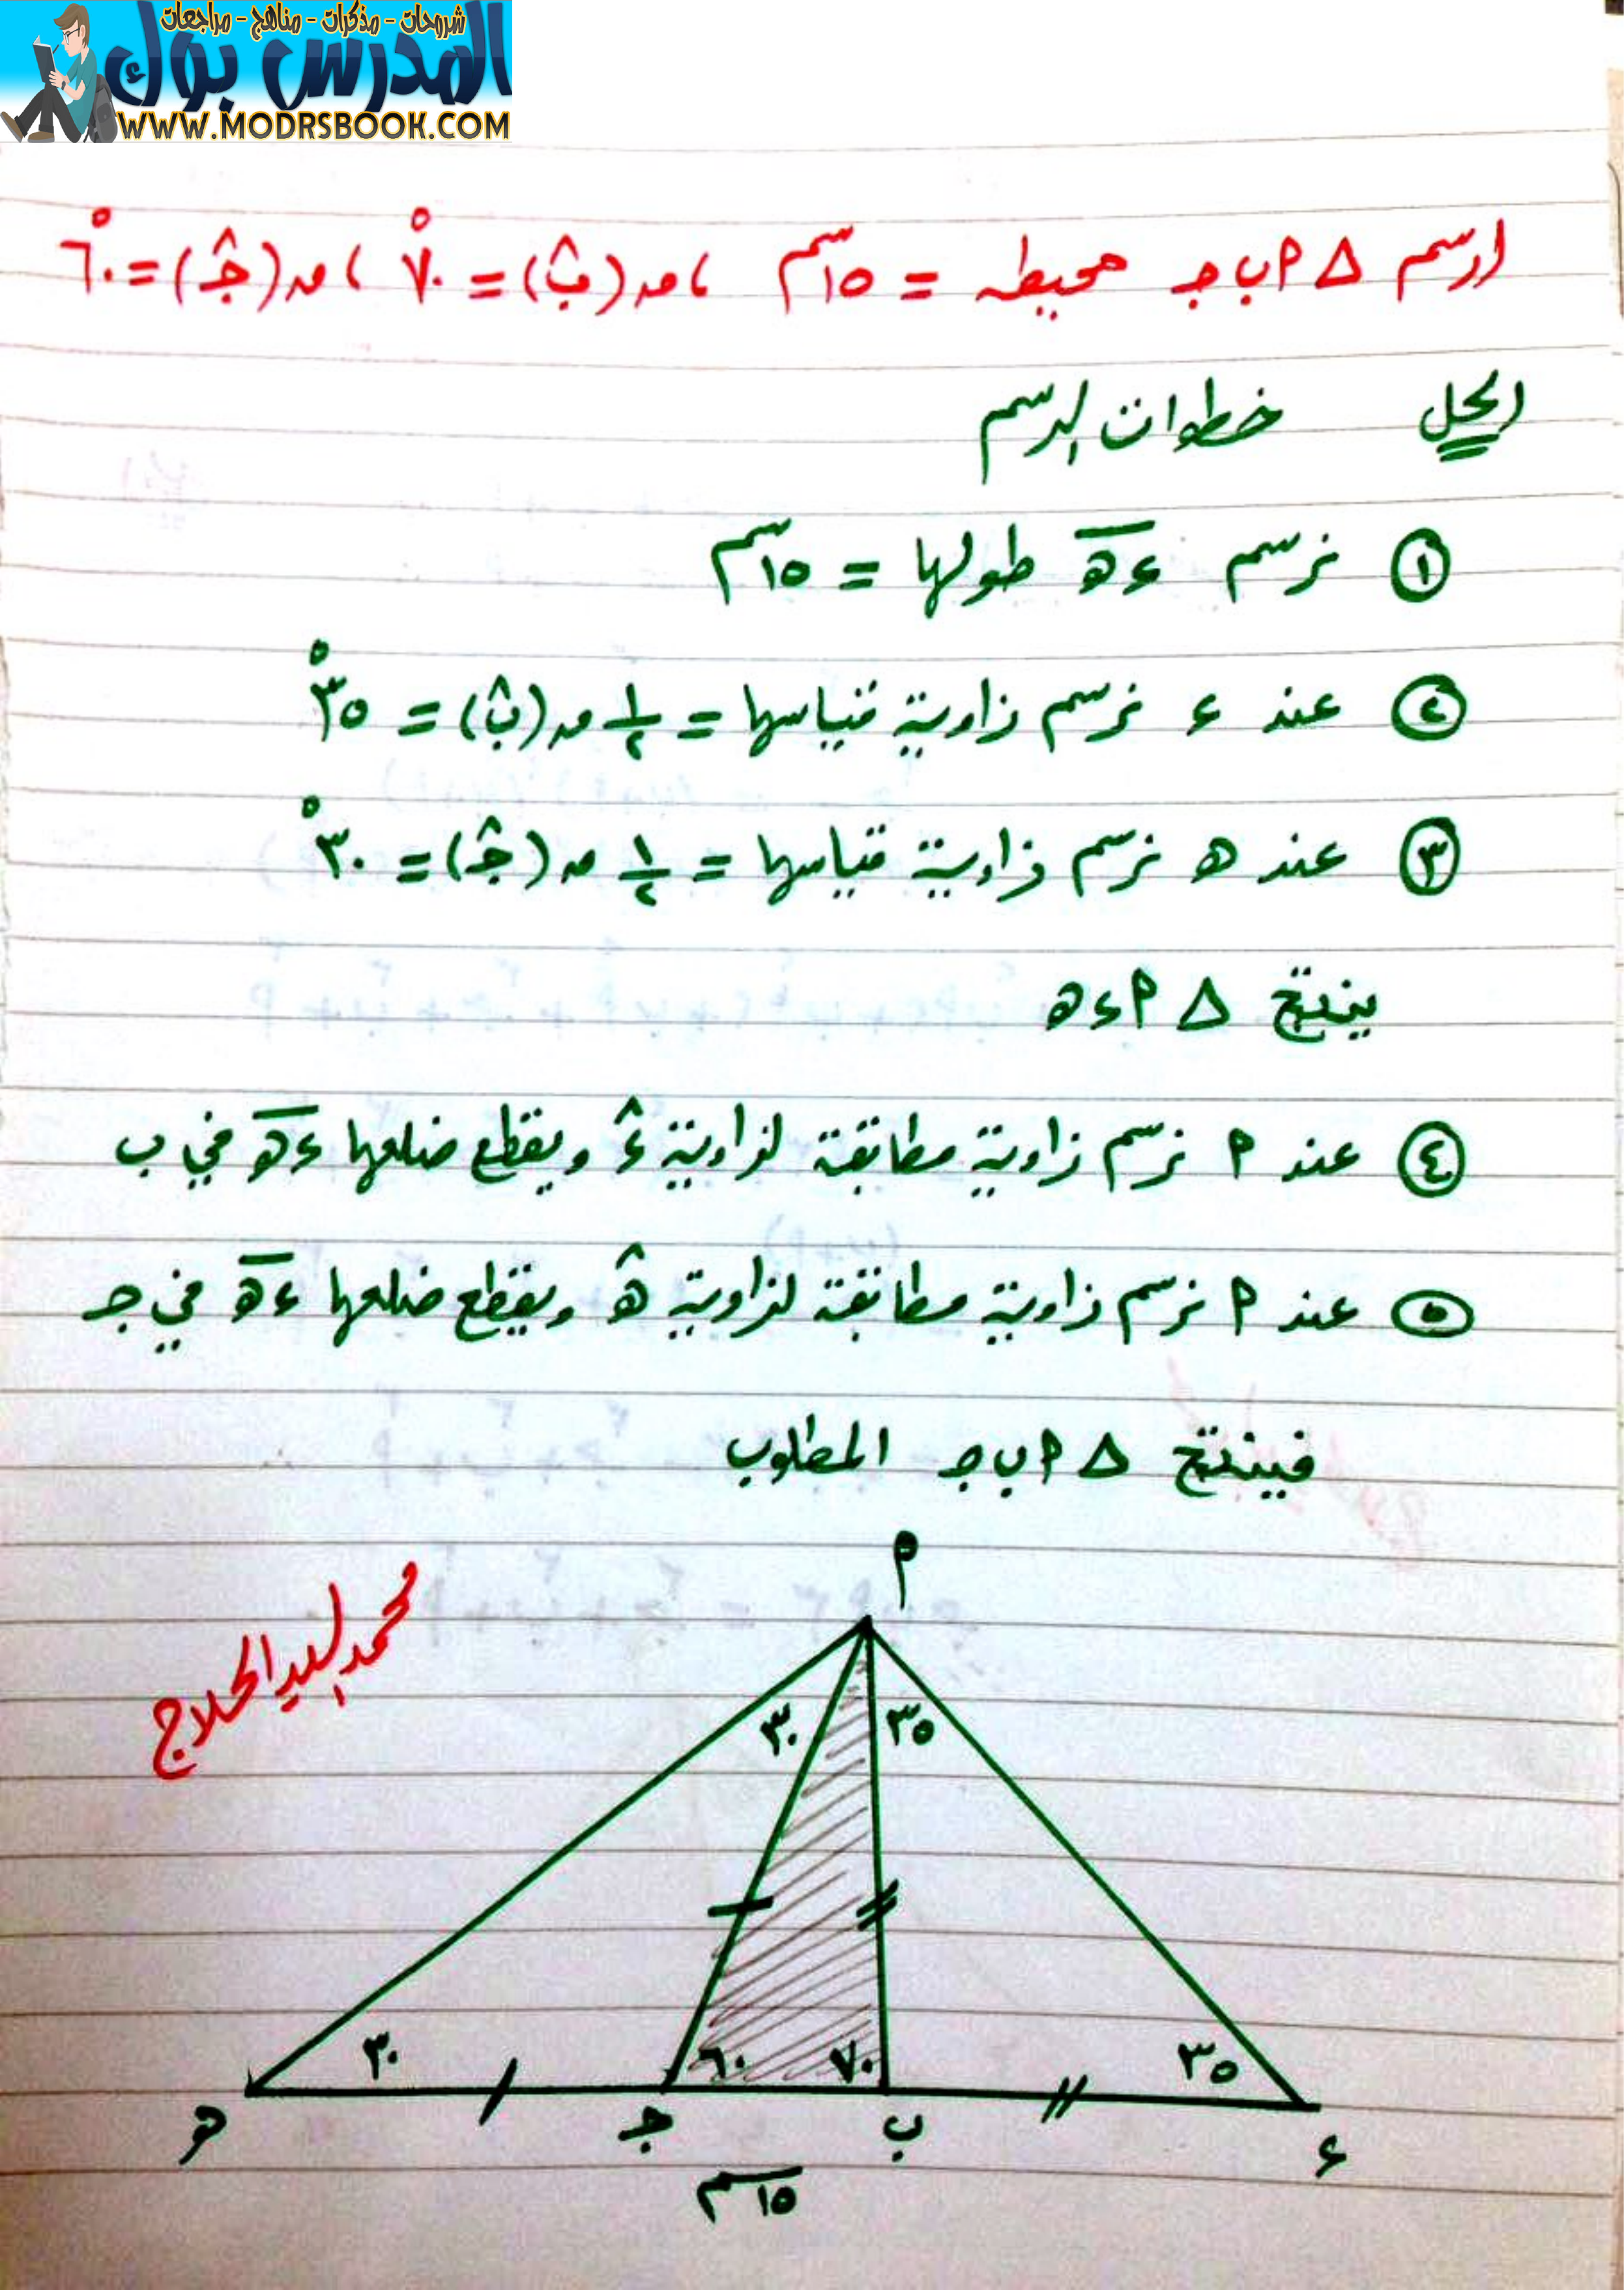 شروحات - مذكرات - مناهج - مراجعات
المدرس بوك
WWW.MODRSBOOK.COM
ارسم Δ أ ب جـ محيطه = ١٥سم ، ق(بَ) = ٧٠° ، ق(جـَ) = ٦٠°
الحل خطوات الرسم
① نرسم ءهـ طولها = ١٥سم
② عند ء نرسم زاوية قياسها = ١/٢ ق(بَ) = ٣٥°
③ عند هـ نرسم زاوية قياسها = ١/٢ ق(جـَ) = ٣٠°
ينتج Δ أ ء هـ
④ عند أ نرسم زاوية مطابقة لزاوية ءَ ويقطع ضلعها ءهـ في ب
⑤ عند أ نرسم زاوية مطابقة لزاوية هـَ ويقطع ضلعها ءهـ في جـ
فينتج Δ أ ب جـ المطلوب
أ
محمد السيد الحلاج
٣٥ ٣٠
٣٥ ٧٠ ٦٠ ٣٠
ء ب جـ هـ
١٥سم